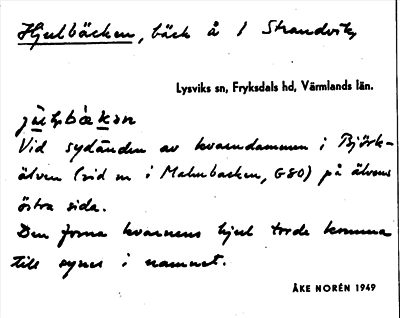 Hjulbäcken, bäck å 1 Strandvik,
Lysviks sn, Fryksdals hd, Värmlands län.
Vid sydänden av kvarndammen i Björk-
älven (vid m i Malmbacken, G80) på älvens
östra sida.
Den forna kvarnens hjul torde komma
till synes i namnet.
ÅKE NORÉN 1949